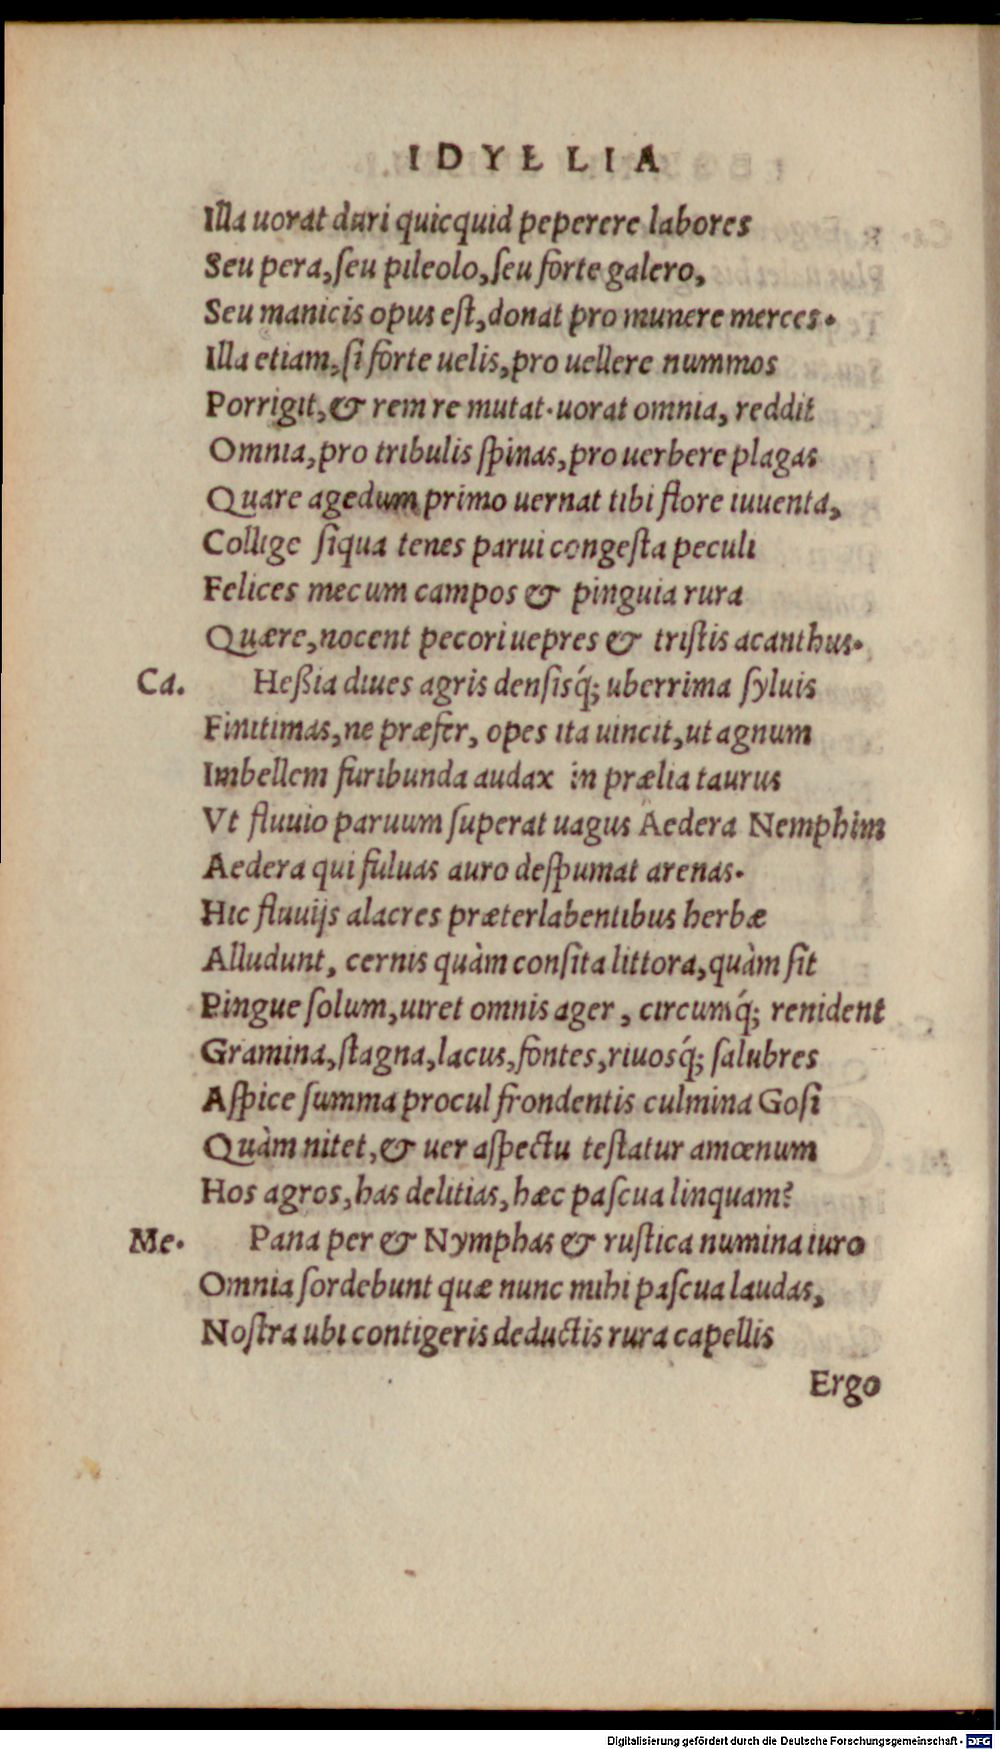 IDYLLIA
Illa uorat duri quicquid peperere labores
Seu pera, ſeu pileolo, ſeu forte galero,
Seu manicis opus eſt, donat pro munere merces.
Illa etiam, ſi forte uelis, pro uellere nummos
Porrigit, & rem re mutat. uorat omnia, reddit
Omnia, pro tribulis ſpinas, pro uerbere plagas
Quare agedum primo uernat tibi flore iuuenta,
Collige ſiqua tenes parui congeſta peculi
Felices mecum campos & pinguia rura
Quære, nocent pecori uepres & triſtis acanthus.
Ca. Heßia diues agris denſisq́; uberrima ſyluis
Finitimas, ne præfer, opes ita uincit, ut agnum
Imbellem furibunda audax in prælia taurus
Vt fluuio paruum ſuperat uagus Aedera Nemphim
Aedera qui fuluas auro deſpumat arenas.
Hic fluuijs alacres præterlabentibus herbæ
Alludunt, cernis quàm conſita littora, quàm ſit
Pingue ſolum, uiret omnis ager, circumq́; renident
Gramina, ſtagna, lacus, fontes, riuosq́; ſalubres
Aſpice ſumma procul frondentis culmina Goſi
Quàm nitet, & uer aſpectu teſtatur amœnum
Hos agros, has delitias, hæc paſcua linquam?
Me. Pana per & Nymphas & ruſtica numina iuro
Omnia ſordebunt quæ nunc mihi paſcua laudas,
Noſtra ubi contigeris deductis rura capellis
Ergo
Digitalisierung gefördert durch die Deutsche Forschungsgemeinschaft - DFG